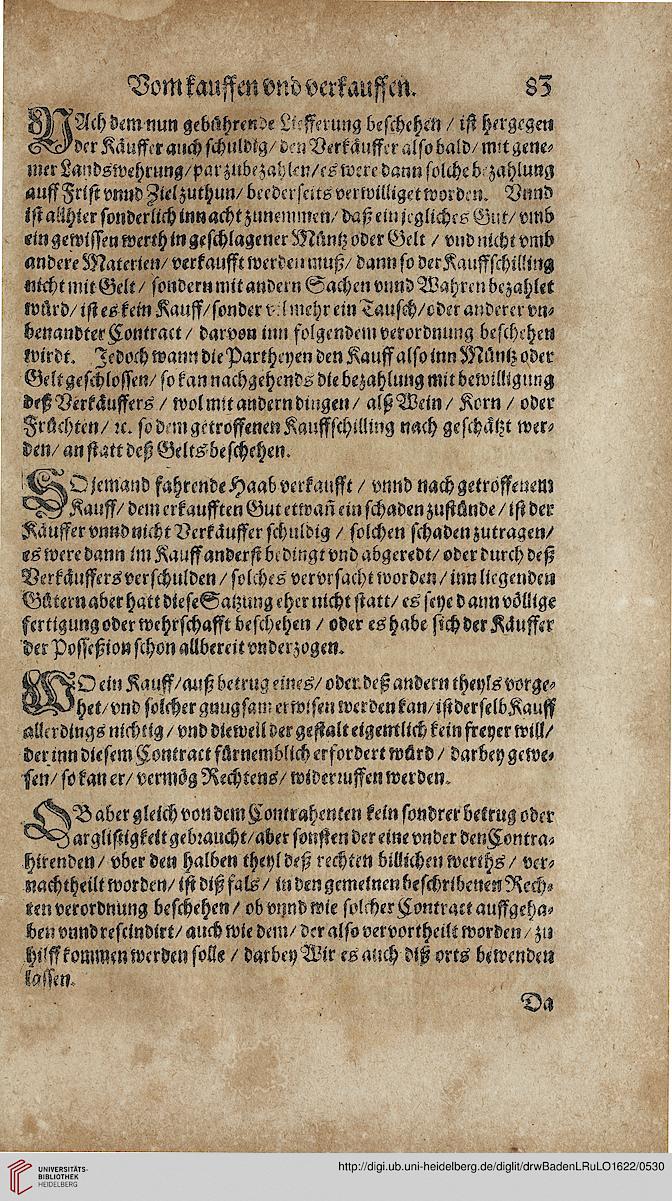 Vom kauffen vnd verkauffen. 83
NAch dem nun gebührende Liefferung beschehen / ist hergegen
der Käuffer auch schuldig / den Verkäuffer also bald / mit gene-
mer Landswehrung / par zubezahlen / es were dann solche bezahlung
auff Frist vnnd Ziel zuthun / beederseits verwilliget worden. Vnnd
ist allhier sonderlich inn acht zunemmen / daß ein jegliches Gut / vmb
ein gewissen werth in geschlagener Müntz oder Gelt / vnd nicht vmb
andere Materien / verkaufft werden muß / dann so der Kauffschilling
nicht mit Gelt / sondern mit andern Sachen vnnd Wahren bezahlet
würd / ist es kein Kauff / sonder vil mehr ein Tausch / oder anderer vn-
benandter Contract / darvon inn folgendem verordnung beschehen
wirdt. Jedoch wann die Partheyen den Kauff also inn Müntz oder
Gelt geschlossen / so kan nachgehends die bezahlung mit bewilligung
deß Verkäuffers / wol mit andern dingen / alß Wein / Korn / oder
Früchten / ꝛc. so dem getroffenen Kauffschilling nach geschätzt wer-
den / an statt deß Gelts beschehen.
SO jemand fahrende Haab verkaufft / vnnd nach getroffenem
Kauff / dem erkaufften Gut etwañ ein schaden zustünde / ist der
Käuffer vnnd nicht Verkäuffer schuldig / solchen schaden zutragen /
es were dann im Kauff anderst bedingt vnd abgeredt / oder durch deß
Verkäuffers verschulden / solches verursacht worden / inn liegenden
Gütern aber hatt diese Satzung eher nicht statt / es seye dann völlige
fertigung oder wehrschafft beschehen / oder es habe sich der Käuffer
der Possession schon allbereit vnderzogen.
WO ein Kauff / auß betrug eines / oder deß andern theyls vorge-
het / vnd solcher gnugsam erwisen werden kan / ist derselb Kauff
allerdings nichtig / vnd dieweil der gestalt eigentlich kein freyer will /
der inn diesem Contract fürnemblich erfordert würd / darbey gewe-
sen / so kan er / vermög Rechtens / widerruffen werden.
OB aber gleich von dem Contrahenten kein sondrer betrug oder
arglistigkeit gebraucht / aber sonsten der eine vnder den Contra-
hirenden / vber den halben theyl deß rechten billichen werths / ver-
nachtheilt worden / ist diß fals / in den gemeinen beschribenen Rech-
ten verordnung beschehen / ob vnnd wie solcher Contract auffgeha-
ben vnnd rescindirt / auch wie dem / der also vervortheilt worden / zu
hilff kommen werden solle / darbey Wir es auch diß orts bewenden
lassen.
Da
UNIVERSITÄTS-
BIBLIOTHEK
HEIDELBERG
http://digi.ub.uni-heidelberg.de/diglit/drwBadenLRuLO1622/0530